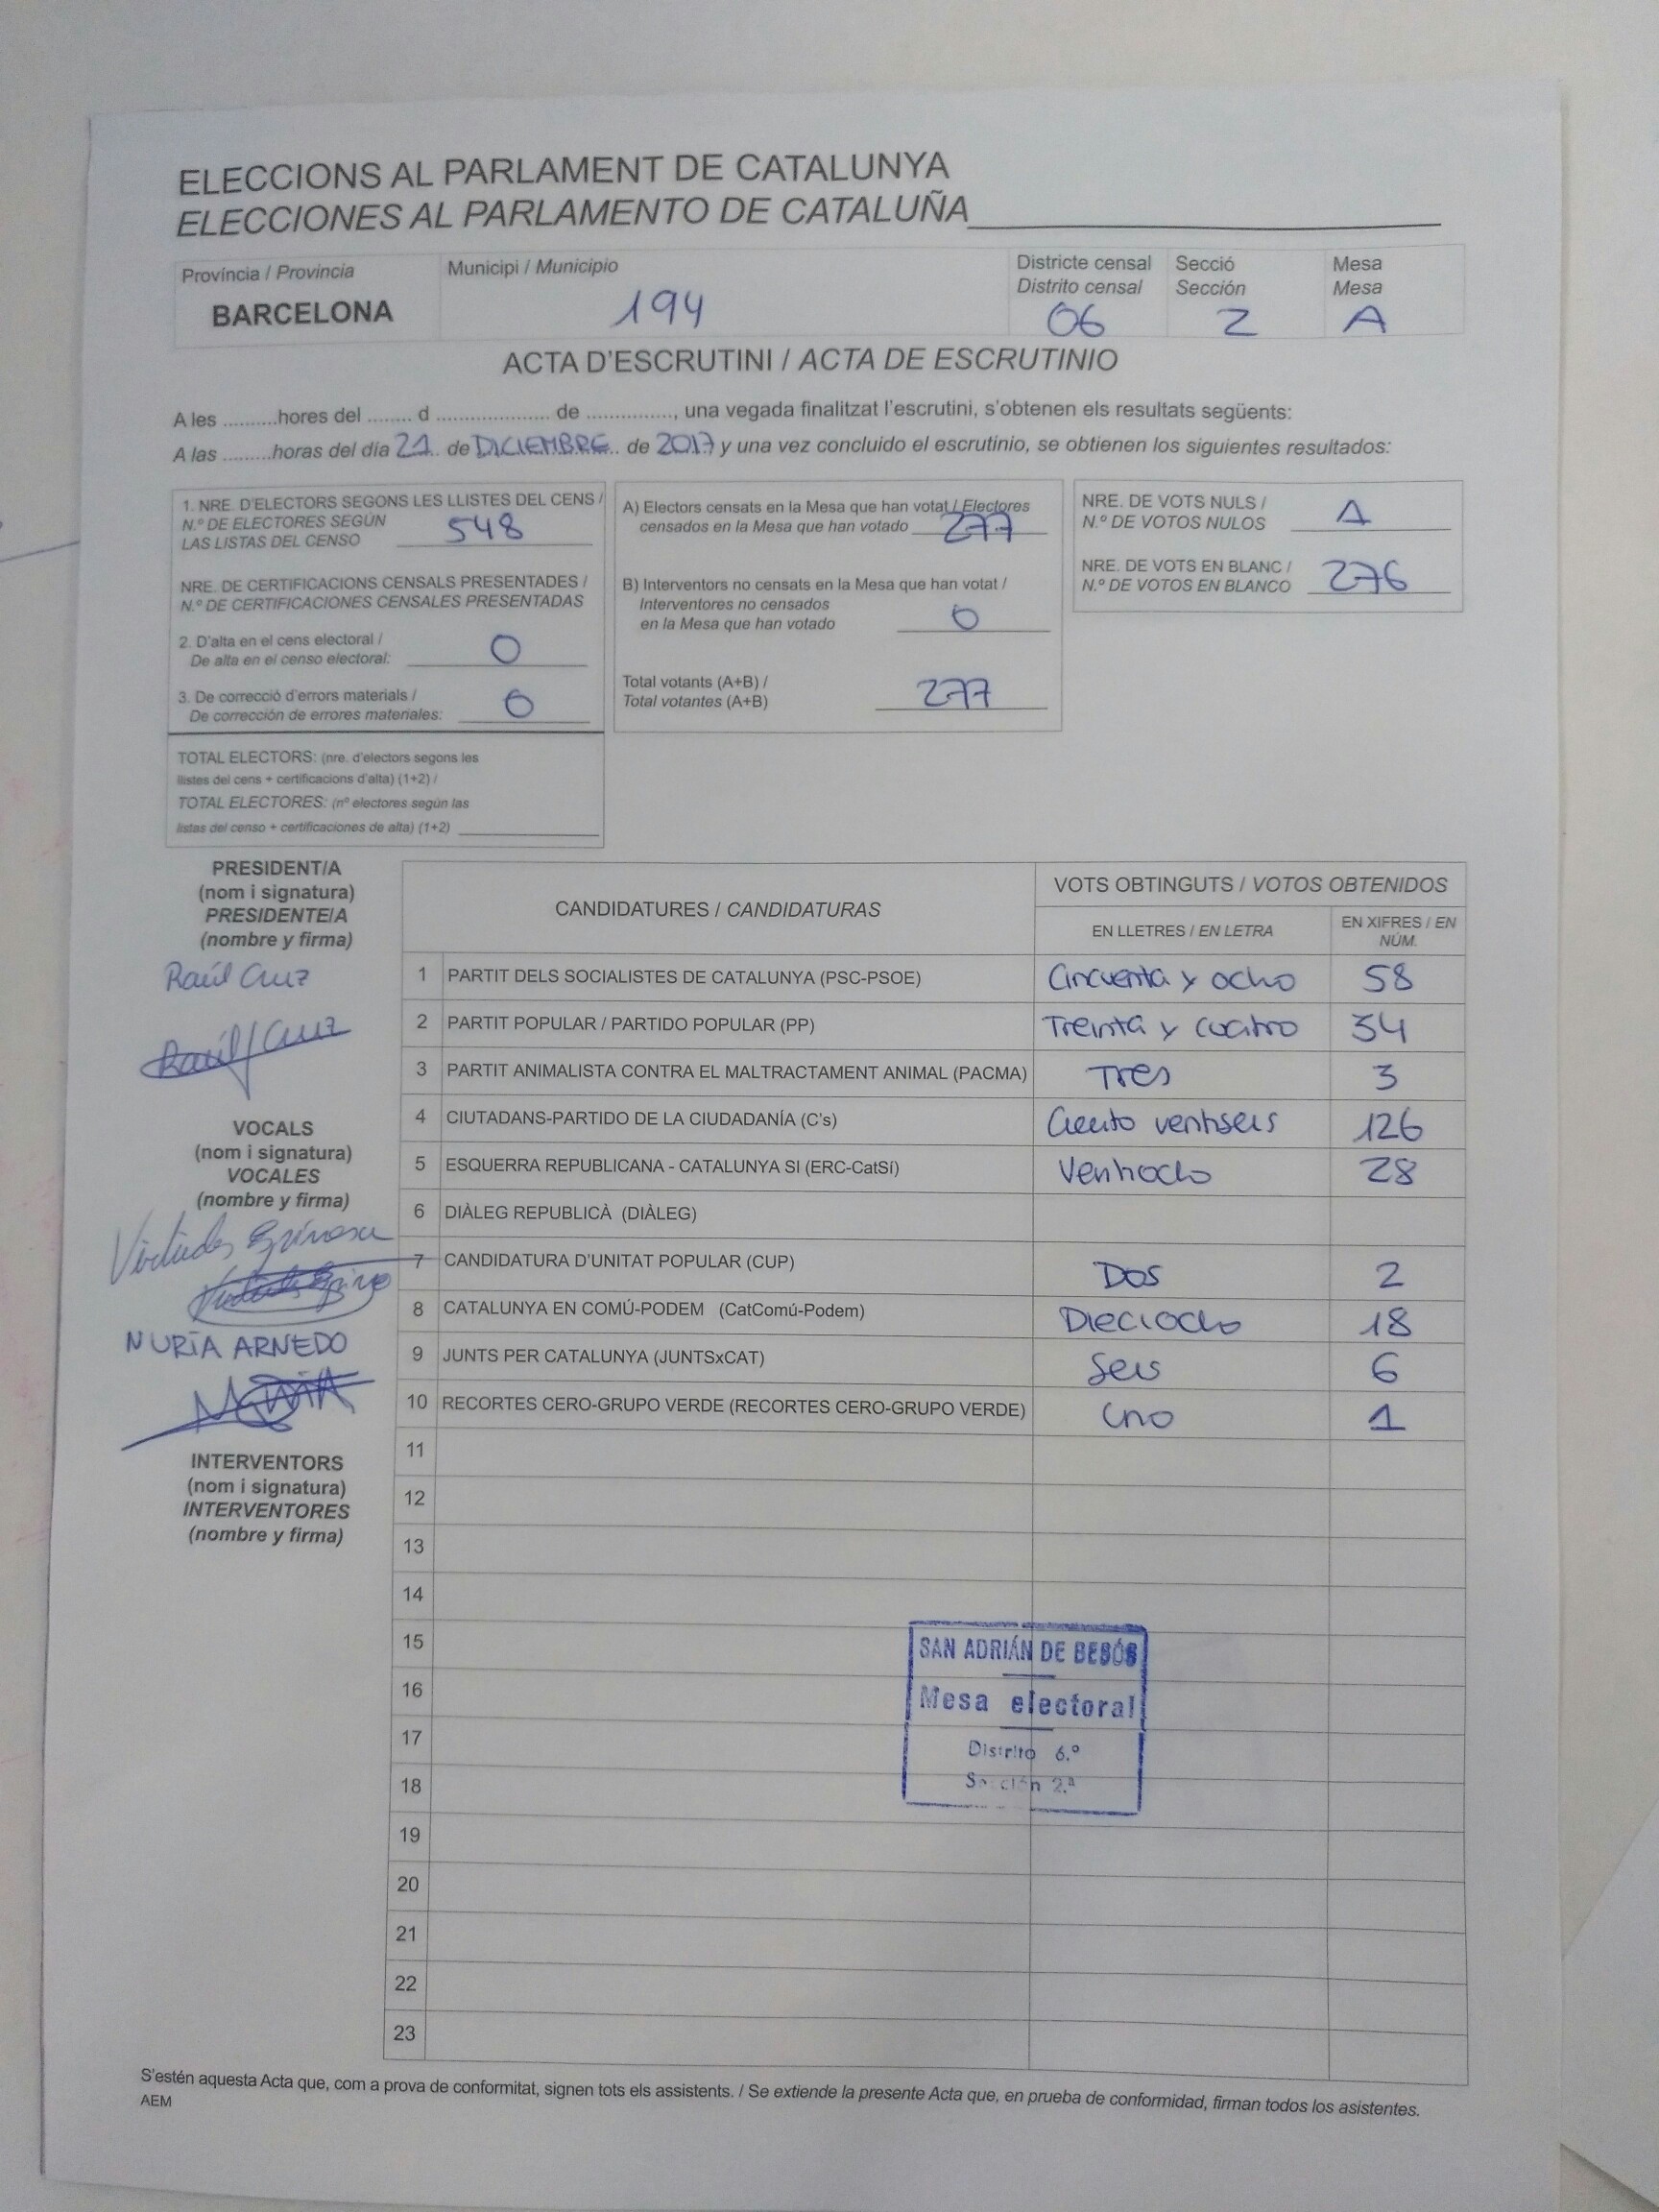 ELECCIONS AL PARLAMENT DE CATALUNYA
ELECCIONES AL PARLAMENTO DE CATALUÑA
Província / Provincia
BARCELONA
Municipi / Municipio
194
Districte censal
Distrito censal
06
Secció
Sección
2
Mesa
Mesa
A
ACTA D'ESCRUTINI / ACTA DE ESCRUTINIO
A les ..........hores del ........ d ..................... de ..............., una vegada finalitzat l'escrutini, s'obtenen els resultats següents:
A las .........horas del día 21 de DICIEMBRE de 2017 y una vez concluido el escrutinio, se obtienen los siguientes resultados:
1. NRE. D'ELECTORS SEGONS LES LLISTES DEL CENS /
N.º DE ELECTORES SEGÚN
LAS LISTAS DEL CENSO 548
NRE. DE CERTIFICACIONS CENSALS PRESENTADES /
N.º DE CERTIFICACIONES CENSALES PRESENTADAS
2. D'alta en el cens electoral /
De alta en el censo electoral: 0
3. De correcció d'errors materials /
De corrección de errores materiales: 0
TOTAL ELECTORS: (nre. d'electors segons les
llistes del cens + certificacions d'alta) (1+2) /
TOTAL ELECTORES: (nº electores según las
listas del censo + certificaciones de alta) (1+2)
A) Electors censats en la Mesa que han votat / Electores
censados en la Mesa que han votado 277
B) Interventors no censats en la Mesa que han votat /
Interventores no censados
en la Mesa que han votado 0
Total votants (A+B) /
Total votantes (A+B) 277
NRE. DE VOTS NULS /
N.º DE VOTOS NULOS 1
NRE. DE VOTS EN BLANC /
N.º DE VOTOS EN BLANCO 276
PRESIDENT/A
(nom i signatura)
PRESIDENTE/A
(nombre y firma)
Raúl Cruz
Raúl Cruz
VOCALS
(nom i signatura)
VOCALES
(nombre y firma)
Virtudes Espinosa
NURIA ARNEDO
INTERVENTORS
(nom i signatura)
INTERVENTORES
(nombre y firma)
CANDIDATURES / CANDIDATURAS
VOTS OBTINGUTS / VOTOS OBTENIDOS
EN LLETRES / EN LETRA
EN XIFRES / EN
NÚM.
1 PARTIT DELS SOCIALISTES DE CATALUNYA (PSC-PSOE) Cincuenta y ocho 58
2 PARTIT POPULAR / PARTIDO POPULAR (PP) Treinta y cuatro 34
3 PARTIT ANIMALISTA CONTRA EL MALTRACTAMENT ANIMAL (PACMA) Tres 3
4 CIUTADANS-PARTIDO DE LA CIUDADANÍA (C's) Ciento ventiseis 126
5 ESQUERRA REPUBLICANA - CATALUNYA SI (ERC-CatSí) Ventiocho 28
6 DIÀLEG REPUBLICÀ (DIÀLEG)
7 CANDIDATURA D'UNITAT POPULAR (CUP) DOS 2
8 CATALUNYA EN COMÚ-PODEM (CatComú-Podem) Dieciocho 18
9 JUNTS PER CATALUNYA (JUNTSxCAT) Seis 6
10 RECORTES CERO-GRUPO VERDE (RECORTES CERO-GRUPO VERDE) Uno 1
11
12
13
14
15
16
17
18
19
20
21
22
23
SAN ADRIÁN DE BESÓS
Mesa electoral
Distrito 6.º
Sección 2.ª
S'estén aquesta Acta que, com a prova de conformitat, signen tots els assistents. / Se extiende la presente Acta que, en prueba de conformidad, firman todos los asistentes.
AEM